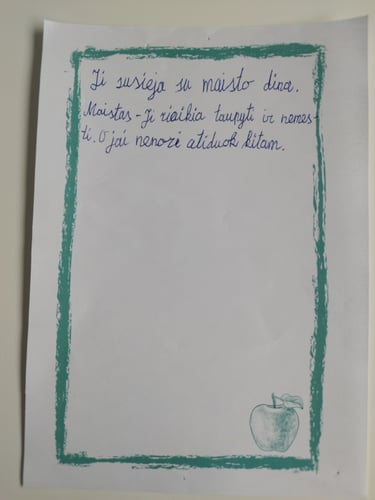 Ji susieja su maisto dina.
Maistas - Ji riaikia taupyti ir nemes-
ti. O jai nenori atiduok kitam.